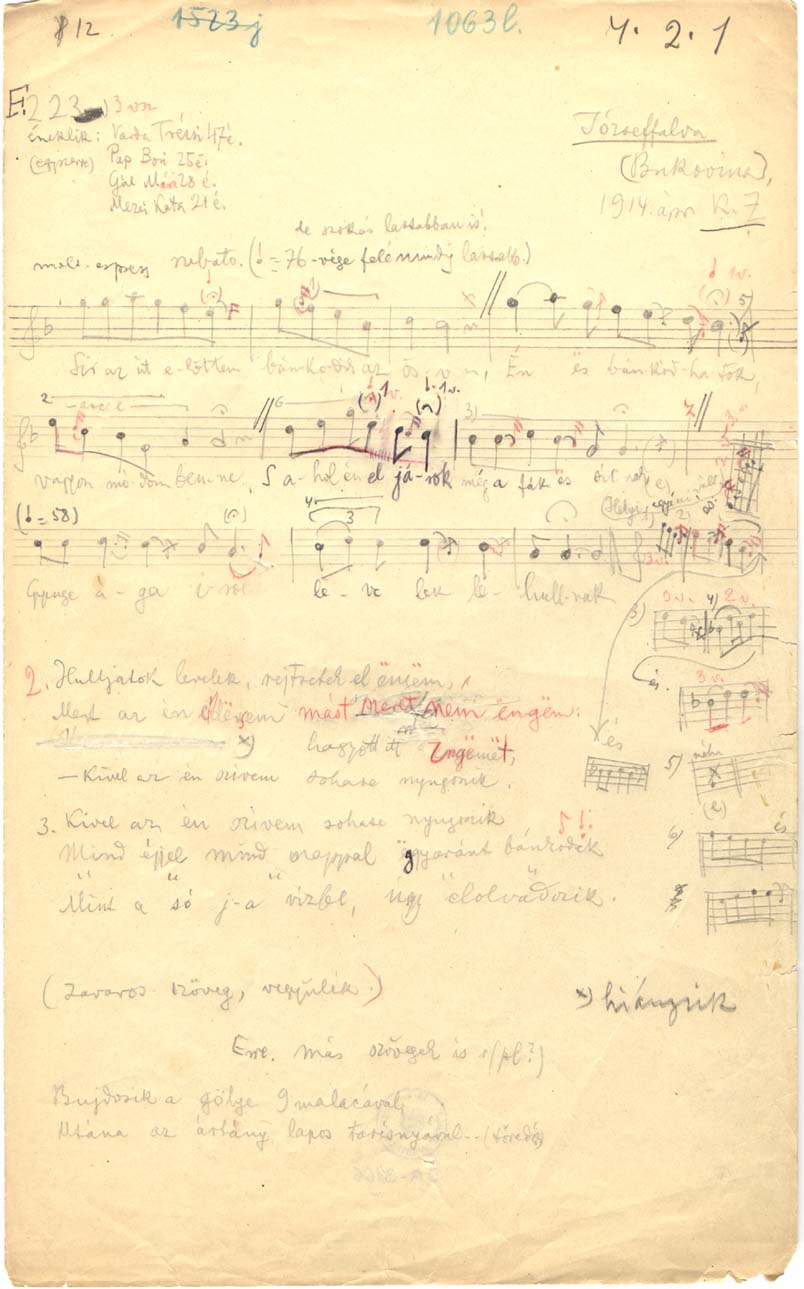 812 1523j 1063l. 4. 2. 1
F. 223) 3 vsz
éneklik: Varda Trézsi 47é.
(egyszerre) Pap Bori 25é.
Gál Mári 28 é.
Mezei Kata 21 é.
Józseffalva
(Bukovina),
1914. ápr. K. Z
de szokás lassabban is!
molt. espress rubato. (♩ = 76 - vége felé mindig lassabb.)
Sír az út e-lőttem bán-ko-dik az ös-vén, Én és bán-kód-ha-tok,
vagyon mó-dom ben-ne, S a-hol én el já-rok még a fák és
(♩ = 58)
Gyenge á-ga i-ról le-ve lek le-hull-nak
2. Hulljatok levelek, rejtsetek el éngem,
Mert az én édesem mást szeret nem engem:
x) hagyott itt Engëmët,
— Kivel az én szivem sohase nyugszik.
3. Kivel az én szivem sohase nyugszik
Mind éjjel mind nappal egyaránt bánkódik
Mint a só j-a vízbe, úgy elolvadozik.
és
5) néha
(e)
6) és
(Zavaros szöveg, vegyülék.)
x) hiányzik
Erre más szövegek is (pl?)
Bujdosik a gölye 9 malacával,
Utána az ártány lapos tarisnyával .. (töredék)